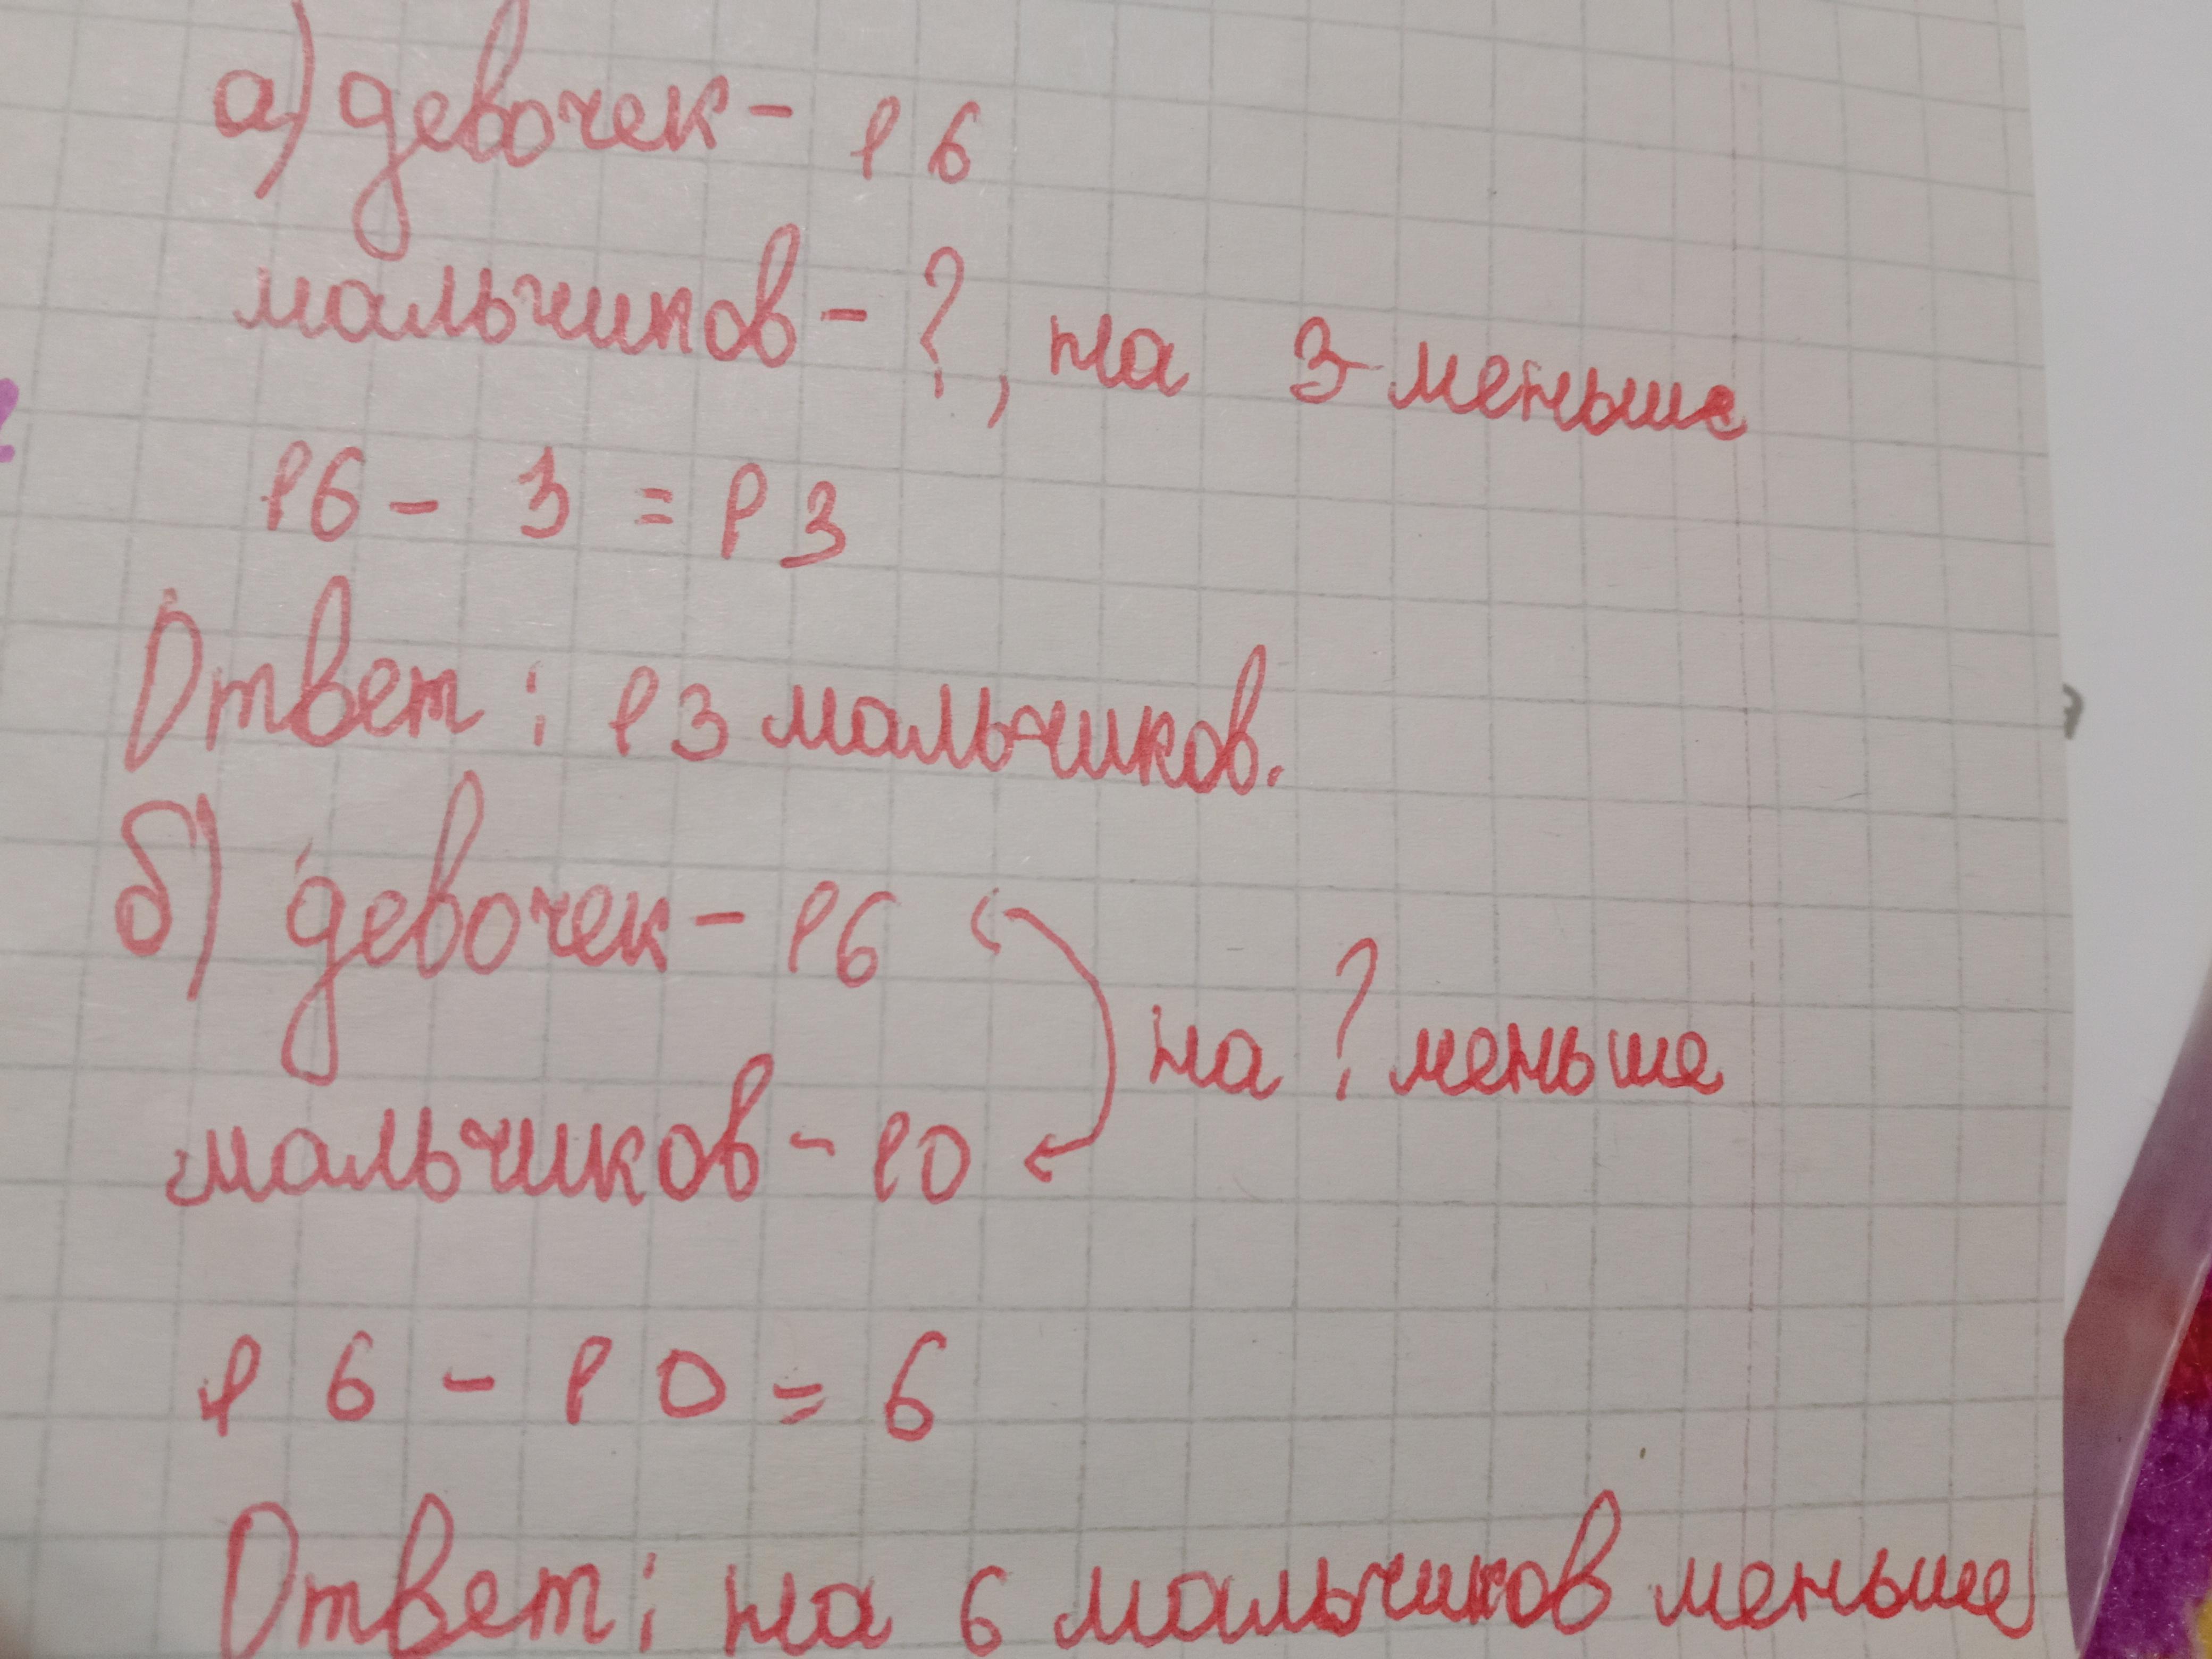 а) девочек - 16
мальчиков - ?, на 3 меньше
16 - 3 = 13
Ответ: 13 мальчиков.
б) девочек - 16
на ? меньше
мальчиков - 10
16 - 10 = 6
Ответ: на 6 мальчиков меньше